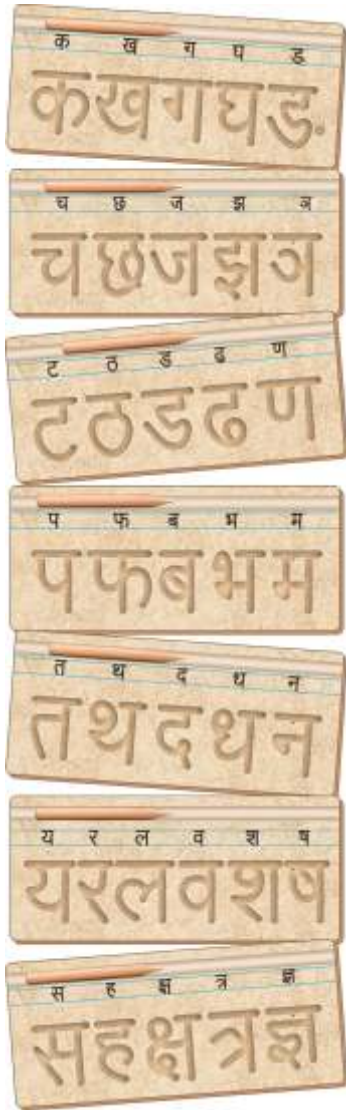 क ख ग घ ड
कखगघङ
च छ ज झ ञ
चछजझञ
ट ठ ड ढ ण
टठडढण
प फ ब भ म
पफबभम
त थ द ध न
तथदधन
य र ल व श ष
यरलवशष
स ह क्ष त्र ज्ञ
सहक्षत्रज्ञ